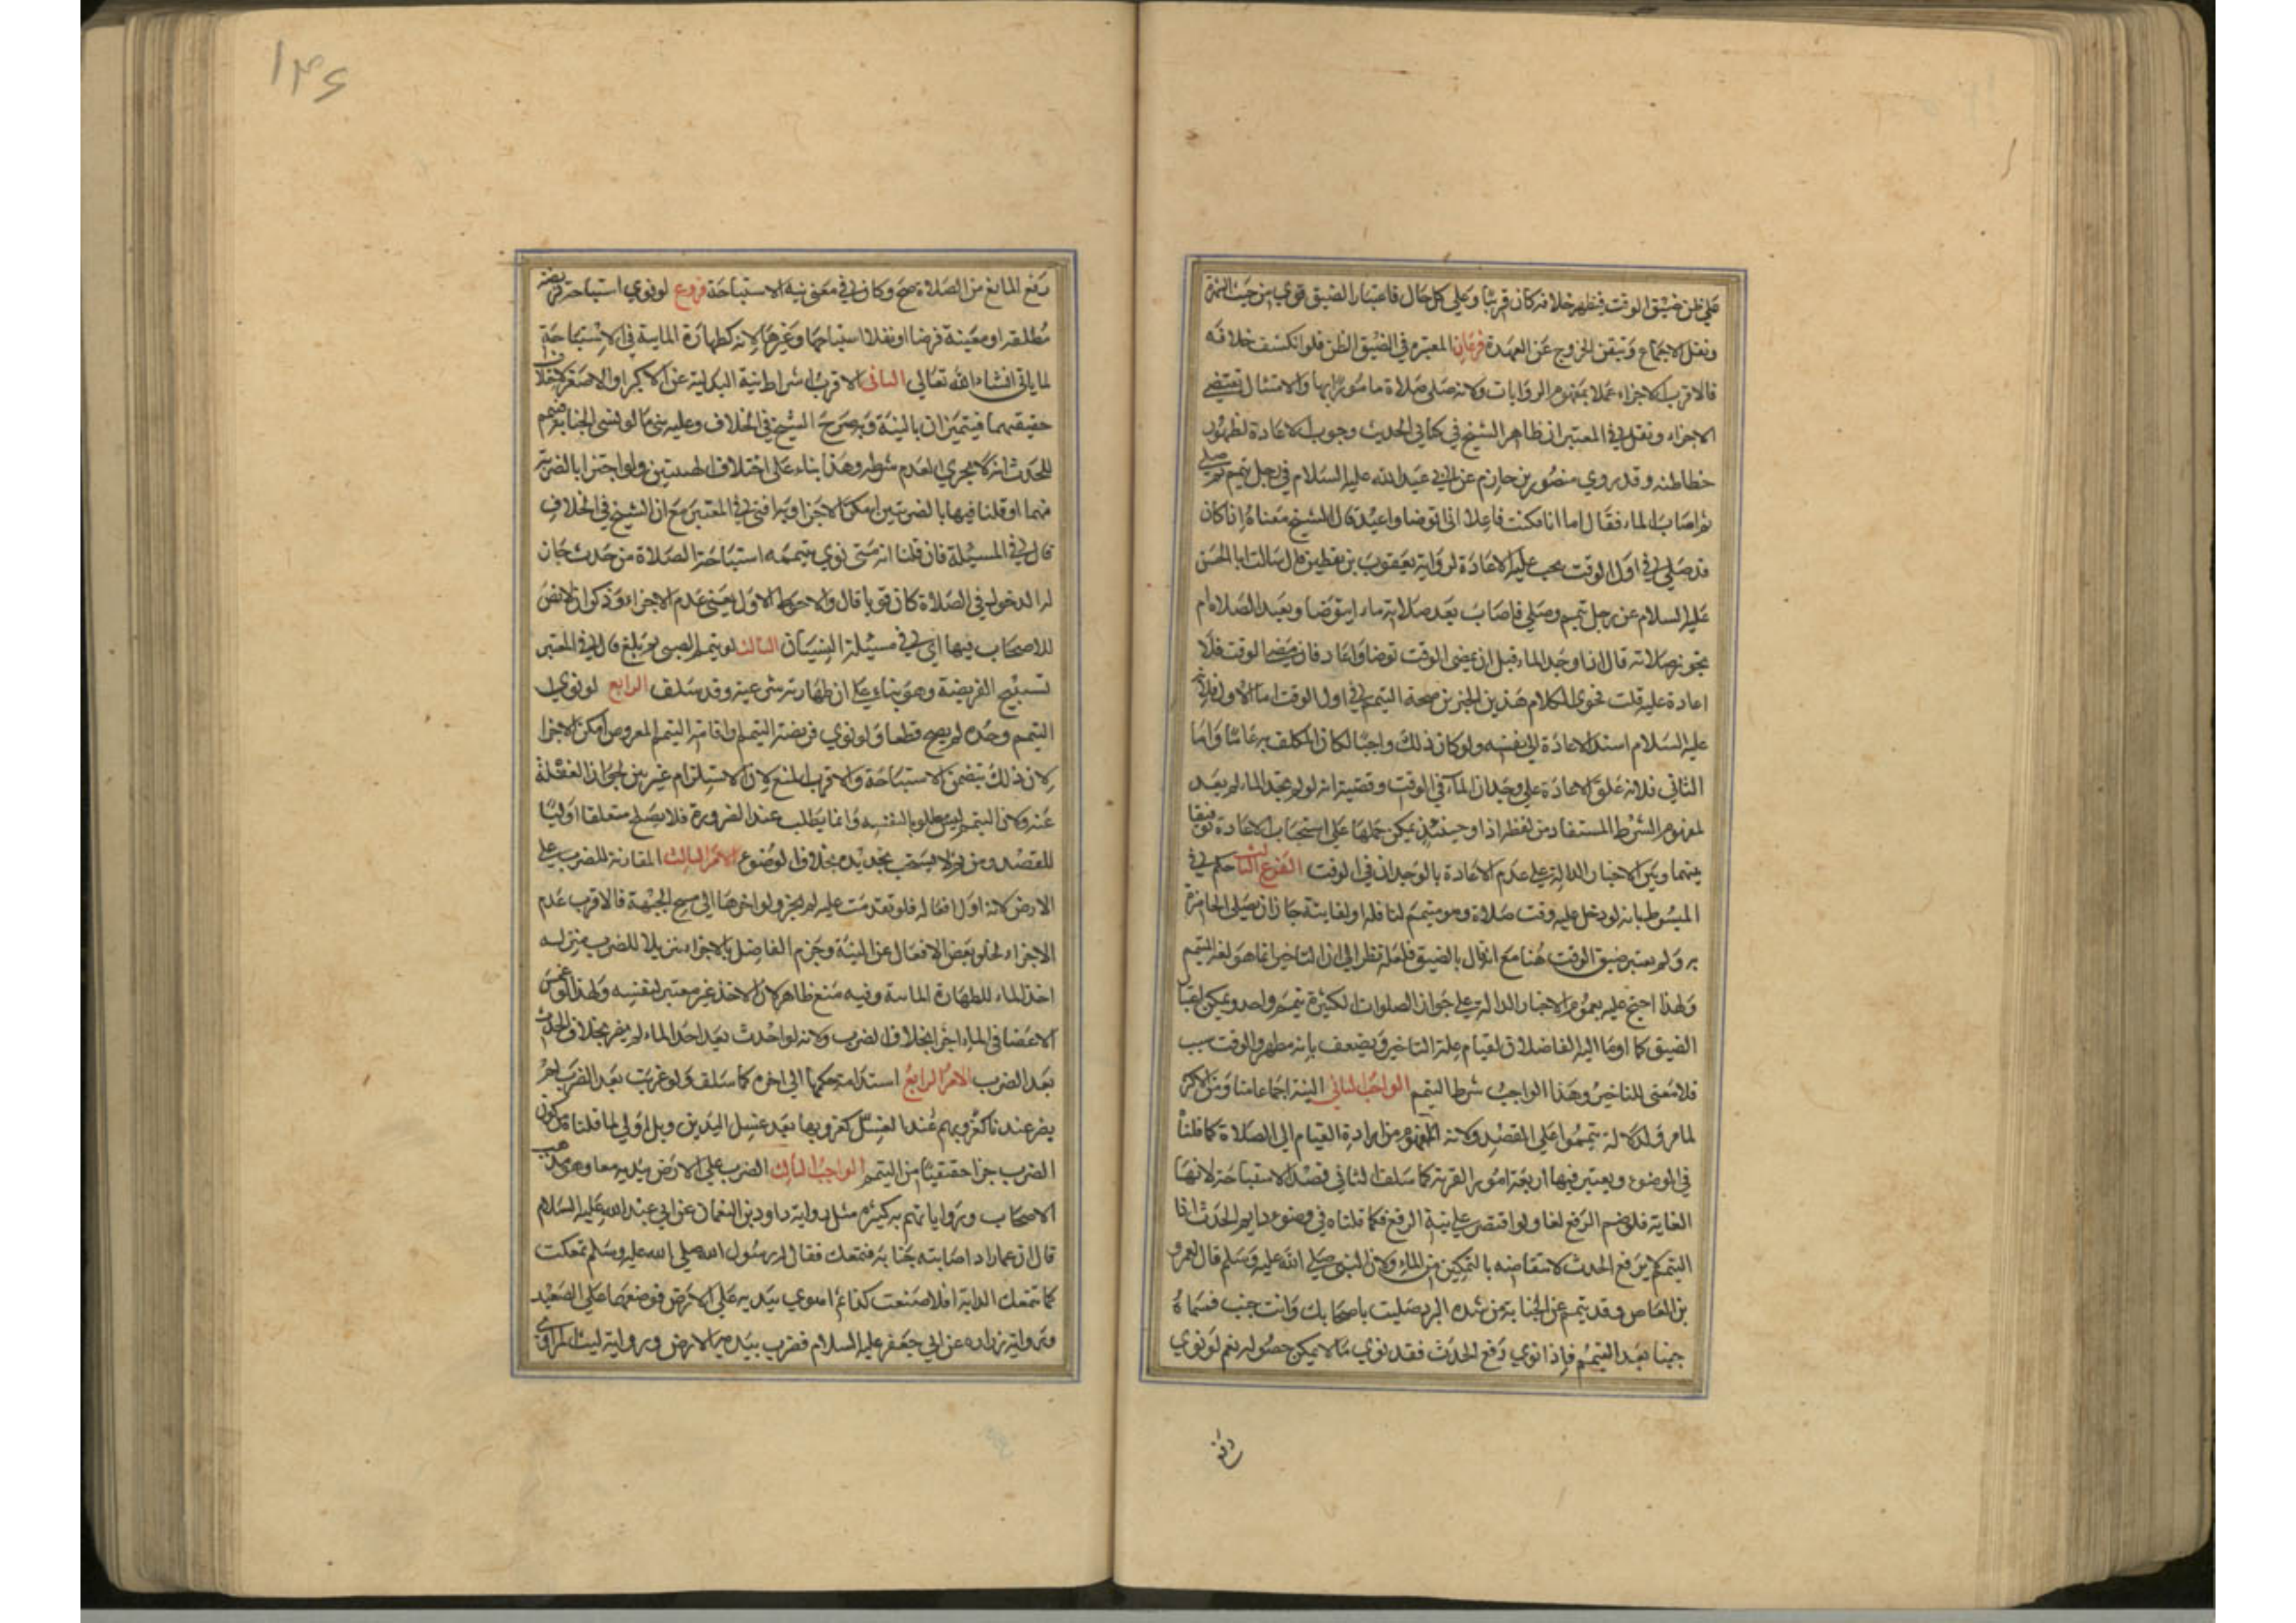 على ظن ضيق الوقت فيظهر خلافه كان قريبا وعلى كل حال فاعتبار الضيق قوي من حيث الشهرة
ونقل الاجماع وتيقن الخروج عن العهدة فرعان المعتبر في الضيق الظن فلو انكشف خلافه
فالاقرب الاجزاء عملا بمفهوم الروايات ولانه صلى صلاة مامورا بها والامتثال يقتضي
الاجزاء ونقل في المعتبر ان ظاهر الشيخ في كتابي الحديث وجوب الاعادة لظهور
خطا ظنه وقد روي منصور بن حازم عن ابي عبد الله عليه السلام في رجل تيمم فصلى
ثم اصاب الماء فقال اما انا فكنت فاعلا اني اتوضا واعيد قال الشيخ معناه اذا كان
قد صلى في اول الوقت يجب عليه الاعادة لرواية يعقوب بن يقطين قال سالت ابا الحسن
عليه السلام عن رجل تيمم وصلى فاصاب بعد صلاته ماء ايتوضا ويعيد الصلاة ام
تجوز صلاته قال اذا وجد الماء قبل ان يمضي الوقت توضا واعاد فان مضى الوقت فلا
اعادة عليه قلت فحوى الكلام هذين الخبرين صحة التيمم في اول الوقت اما الاول فلانه
عليه السلام اسند الاعادة الى نفسه ولو كان ذلك واجبا لكان المكلف به عاما واما
الثاني فلانه علق الاعادة على وجدان الماء في الوقت وقضيته انه لو لم يجد الماء لم يعد
لمفهوم الشرط المستفاد من لفظ اذا وحينئذ يمكن حملها على استحباب الاعادة توفيقا
بينهما وبين الاخبار الدالة على عدم الاعادة بالوجدان في الوقت الفرع الثالث حكم في
المبسوط بانه لو دخل عليه وقت صلاة وهو متيمم لنافلة او لفايتة جاز ان يصلي الحاضرة
به ولم يعتبر ضيق الوقت هنا مع انه قال بالضيق فلعله نظر الى ان التاخير انما هو لغير المتيمم
ولهذا احتج عليه بعموم الاخبار الدالة على جواز الصلوات الكثيرة بتيمم واحد ويمكن اعتبار
الضيق كما اوما اليه الفاضلان لقيام علة التاخير ويضعف بانه متطهر والوقت سبب
فلا معنى للتاخير وهذا الواجب شرط التيمم الواجب الثاني النية اجماعا منا ومن الاكثر
لما مر ولدلالة تيمموا على القصد ولانه المفهوم من ارادة القيام الى الصلاة كما قلنا
في الوضوء ويعتبر فيها اربعة امور القربة كما سلف الثاني قصد الاستباحة لانها
الغاية فلو ضم الرفع لغا ولو اقتصر على نية الرفع فكما قلناه في وضوء دايم الحدث اذا
التيمم لا يرفع الحدث لانتقاضه بالتمكين من الماء ولان النبي صلى الله عليه وسلم قال لعمرو
بن العاص وقد تيمم عن الجنابة من شدة البرد صليت باصحابك وانت جنب فسماه
جنبا بعد التيمم فاذا نوي رفع الحدث فقد نوي ما لا يمكن حصوله نعم لو نوي
رفع
۱۴۶
رفع المانع من الصلاة صح وكان في معنى نية الاستباحة فروع لو نوي استباحة فريضة
مطلقة او معينة فرضا او نفلا استباحها وغيرها لانه كطهارة المائية في الاستباحة
لما ياتي انشاء الله تعالى الثاني الاقرب اشتراط نية البدلية عن الاكبر او الاصغر لاختلاف
حقيقتهما فيتميزان بالنية وبه صرح الشيخ في الخلاف وعليه بنى ما لو نسي الجنابة فتيمم
للحدث انه لا يجزي لعدم شرطه وهذا بناء على اختلاف الهيئتين ولو اجتزا بالضربة
فيهما او قلنا فيها بالضربتين امكن الاجزا وبه افتى في المعتبر مع ان الشيخ في الخلاف
قال في المسيلة فان قلنا انه متى نوي بتيممه استباحة الصلاة من حدث جان
له الدخول في الصلاة كان قويا قال والاحوط الاول يعني عدم الاجزاء وذكر ان لا نص
للاصحاب فيها اي في مسيلة النسيان الثالث لو تيمم الصبي ثم بلغ قال في المعتبر
تستبيح الفريضة وهو بناء على ان طهارته شرعية وقد سلف الرابع لو نوي
التيمم وحده لم يصح قطعا ولو نوي فريضة التيمم او اقامة التيمم المفروض امكن الاجزا
لان ذلك يتضمن الاستباحة والاقرب المنع لان الاستلزام غير بين لجواز الغفلة
عنه ولان التيمم ليس مطلوبا لنفسه وانما يطلب عند الضرورة فلا يصلح متعلقا اوليا
للقصد ومن ثم لا يستحب تجديده بخلاف الوضوء الامر الثالث المقارنة للضرب على
الارض لانه اول افعاله فلو تقدمت عليه لم يجز ولو اخرها الى مسح الجبهة فالاقرب عدم
الاجزاء لخلو بعض الافعال عن النية وجزم الفاضل بالاجزاء تنزيلا للضرب منزلة
اخذ الماء للطهارة المائية وفيه منع ظاهر لان الاخذ غير معتبر لنفسه ولهذا لو غمس
الاعضا في الماء اجزا بخلاف الضرب ولانه لو احدث بعد اخذ الماء لم يضر بخلاف الحدث
بعد الضرب الامر الرابع استدامة حكمها الى اخره كما سلف ولو عزبت بعد الضرب لم
يضر عندنا كعزوبها عند الغسل كعزوبها بعد غسل اليدين وبل اولى لما قلناه من كون
الضرب جزا حقيقيا من التيمم الواجب الثالث الضرب على الارض بيديه معا وهو مذهب
الاصحاب ورواياتهم به كثيرة مثل رواية داود بن النعمان عن ابي عبد الله عليه السلام
قال ان عمارا اصابته جنابة فتمعك فقال له رسول الله صلى الله عليه وسلم تمعكت
كما تتمعك الدابة افلا صنعت كذا ثم اهوي بيديه على الارض فوضعهما على الصعيد
ورواية زرارة عن ابي جعفر عليه السلام فضرب بيديه الارض ورواية ليث المرادي